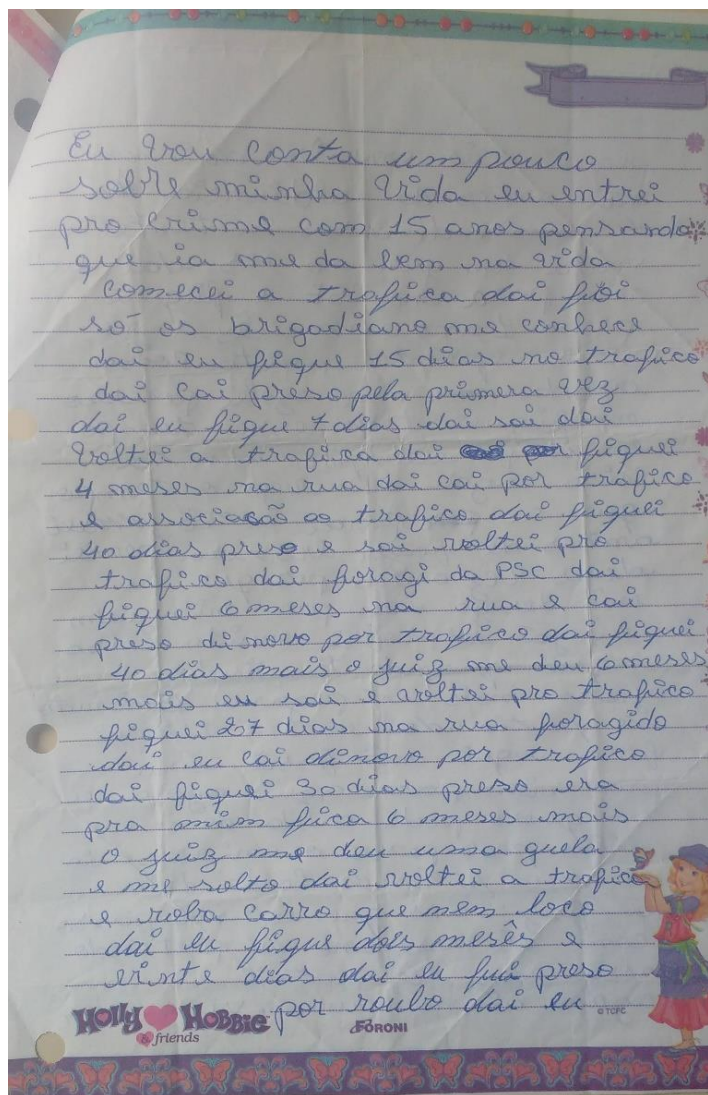 Eu vou conta um pouco
sobre minha vida eu entrei
pro crime com 15 anos pensando
que ia me da bem na vida
comecei a trafica dai foi
só os brigadiano me conhece
dai eu fique 15 dias no trafico
dai cai preso pela primera vez
dai eu fique 7 dias dai sai dai
voltei a trafica dai fiquei
4 meses na rua dai cai por trafico
e associasão ao trafico dai fiquei
40 dias preso e sai voltei pro
trafico dai foragi da PSC dai
fiquei 6 meses na rua e cai
preso di novo por trafico dai fiquei
40 dias mais o juiz me deu 6 meses
mais eu sai e voltei pro trafico
fiquei 27 dias na rua foragido
dai eu cai dinovo por trafico
dai fiquei 30 dias preso era
pra mim fica 6 meses mais
o juiz me deu uma guela
e me solto dai voltei a trafica
e roba carro que nem loco
dai eu fique dois mesês e
vinte dias dai eu fui preso
por roubo dai eu
Holly Hobbie
& friends
FORONI
© TCFC